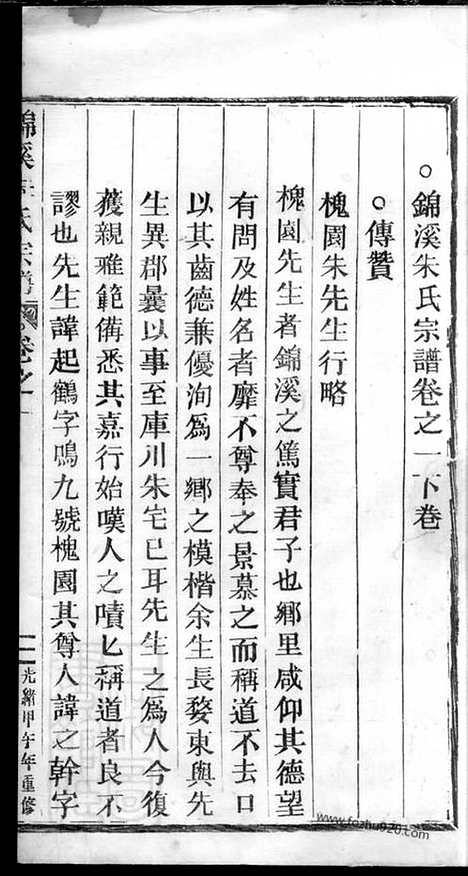 ○錦溪朱氏宗譜卷之一下卷
○傳贊
槐園朱先生行略
槐園先生者錦溪之篤實君子也鄉里咸仰其德望
有問及姓名者靡不尊奉之景慕之而稱道不去口
以其齒德兼優洵為一鄉之模楷余生長婺東與先
生異郡曩以事至庫川朱宅已耳先生之為人今復
獲親雅範備悉其嘉行始嘆人之嘖匕稱道者良不
謬也先生諱起鶴字鳴九號槐園其尊人諱之幹字
錦溪朱氏宗譜
卷之一
光緒甲午年重修
www.fozhu920.com